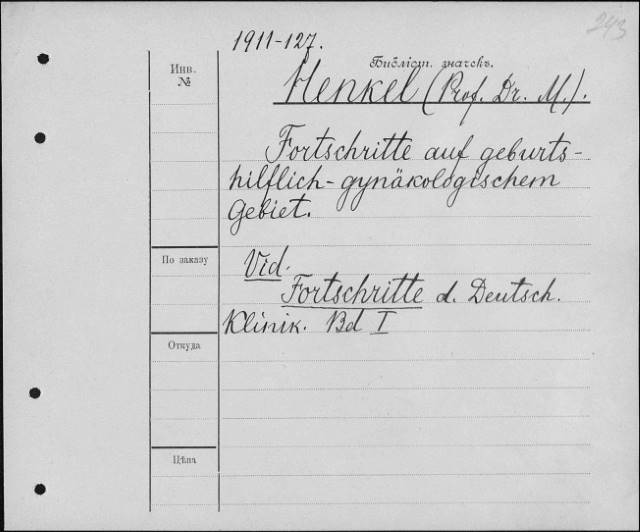 243
1911-127.
Инв.
№
Библіот. значекъ.
Henkel (Prof. Dr. M.).
Fortschritte auf geburts-
hilflich-gynäkologischem
Gebiet.
По заказу
Vid.
Fortschritte d. Deutsch.
Klinik. Bd I
Откуда
Цѣна